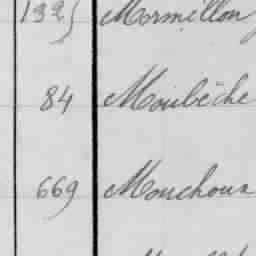 Mormillon
84 Moubêche
669 Mouchoux